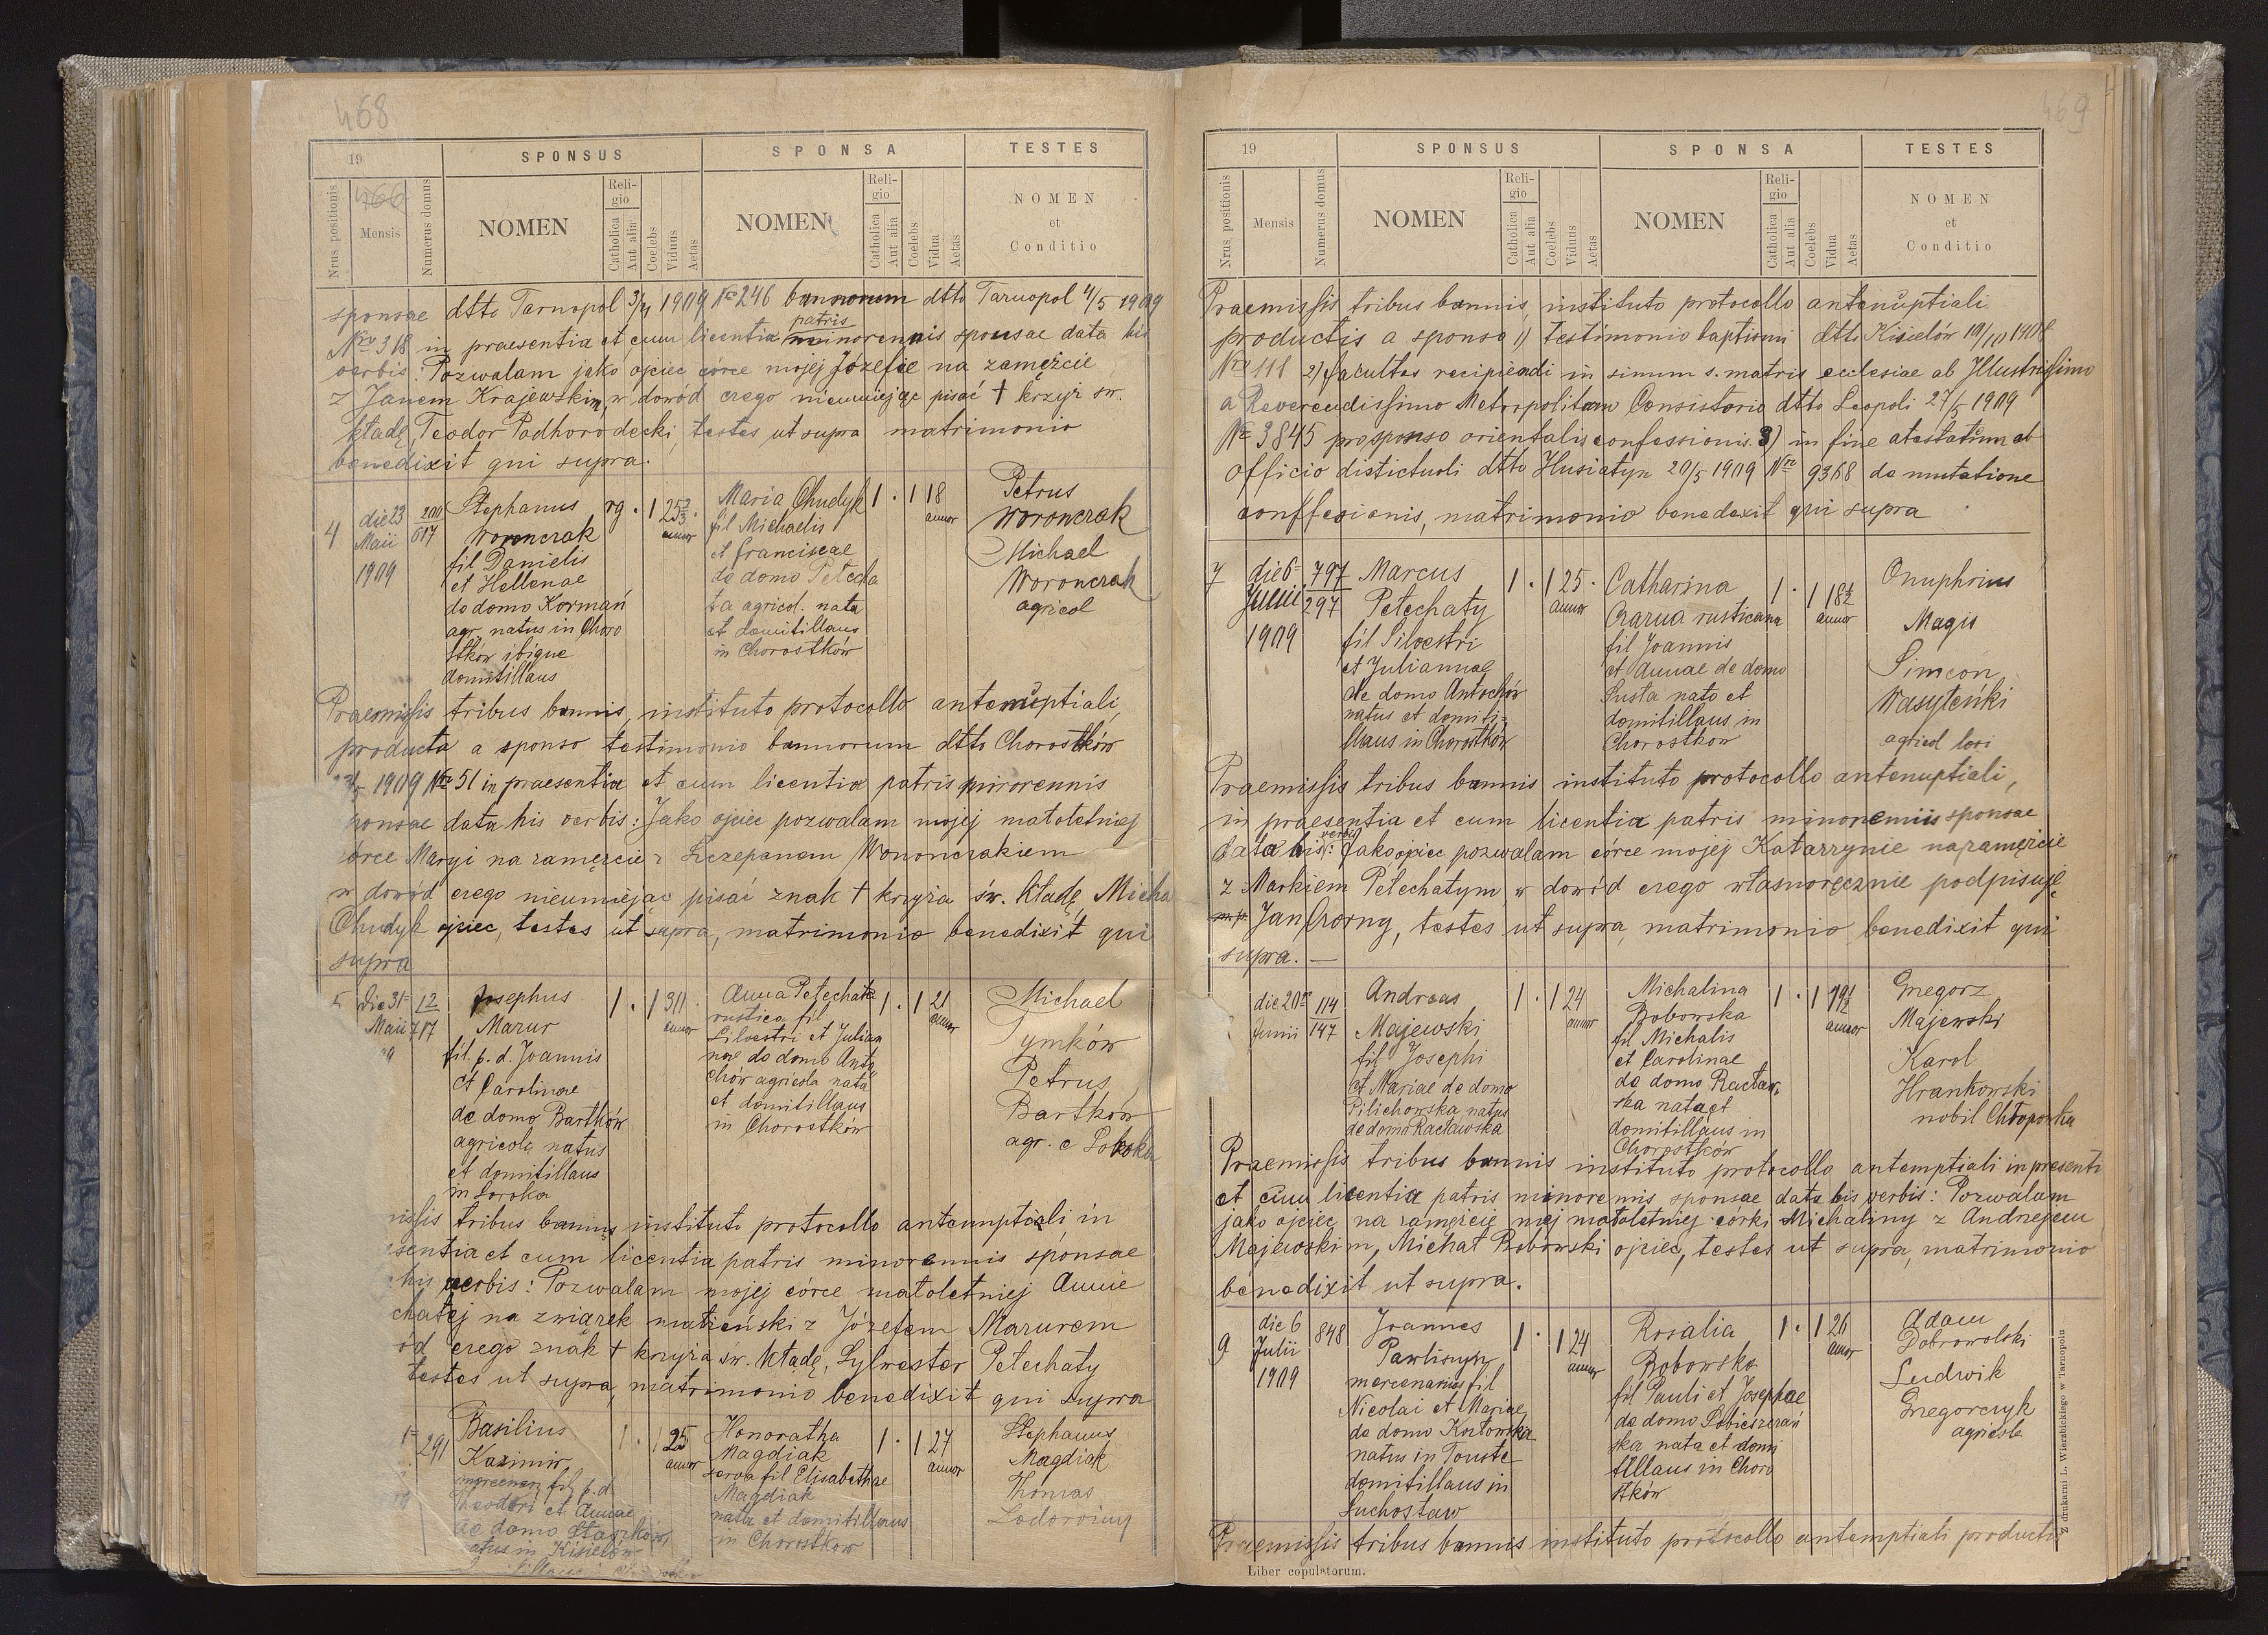 468
19
SPONSUS
SPONSA
TESTES
Nrus positionis
466
Mensis
Numerus domus
NOMEN
Religio
Catholica
Aut alia
Coelebs
Viduus
Aetas
NOMEN
Religio
Catholica
Aut alia
Coelebs
Vidua
Aetas
NOMEN
et
Conditio
sponsae dtto Tarnopol 3/4 1909 No 246 bannorum dtto Tarnopol 4/5 1909
Nro 318 in praesentia et cum licentia patris minorennis sponsae data his
verbis: Pozwalam jako ojciec córce mojej Józefie na zamęście
z Janem Krajewskim, w dowód czego nieumiejąc pisać † krzyż św.
kładę, Teodor Podhorodecki, testes ut supra matrimonio
benedixit qui supra.
4
die 23
Maii
1909
200
617
Stephanus
Woronczak
fil Danielis
et Hellenae
de domo Kormań
agr. natus in Choro
stków ibique
domitillans
rg . 1 25 2/3
annor
Maria Chudyk
fil Michaelis
et Franciscae
de domo Petecha
ta agricol. nata
et domitillans
in Chorostków
1 . 1 18
annor
Petrus
Woronczak
Michael
Woronczak
agricol
Praemissis tribus bannis, instituto protocollo antenuptiali,
producta a sponso testimonio bannorum dtto Chorostków
1909 Nro 51 in praesentia et cum licentia patris minorennis
ponsae data his verbis: Jako ojciec pozwalam mojej małoletniej
órce Maryi na zamęzcie z Szczepanem Wononczakiem
w dowód czego nieumiejąc pisać znak † krzyża św. kładę Micha
Chudyk ojciec, testes ut supra, matrimonio benedixit qui
supra
5
die 31
Maii
12
717
Josephus
Mazur
fil. p. d. Joannis
et Carolinae
de domo Bartków
agricola natus
et domitillans
in Soroka
1 . 1 30
annor
Anna Petechata
rustica fil
Silvestri et Julian
nae de domo Anto
chów agricola nata
et domitillans
in Chorostków
1 . 1 21
annor
Michael
Tymków
Petrus
Bartków
agr. e Soroka
issis tribus bannis instituto protocollo antenuptiali, in
esentia et cum licentia patris minorennis sponsae
his verbis: Pozwalam mojej córce małoletniej Annie
chatej na związek małżeński z Józefem Mazurem
ód czego znak † krzyża św. kładę, Sylwester Petechaty
testes ut supra, matrimonio benedixit qui supra
291
Basilius
Kazimir
fil p. d.
Theodori et Annae
de domo Staszków
atus in Kisielów
1 . 1 25
annor
Honoratha
Magdiak
serva fil Elisabethae
Magdiak
nata et domitillans
in Chorostkow
1 . 1 27
annor
Stephanus
Magdiak
Thomas
469
19
SPONSUS
SPONSA
TESTES
Nrus positionis
Mensis
Numerus domus
NOMEN
Religio
Catholica
Aut alia
Coelebs
Viduus
Aetas
NOMEN
Religio
Catholica
Aut alia
Coelebs
Vidua
Aetas
NOMEN
et
Conditio
Praemissis tribus bannis, instituto protocollo antenuptiali
productis a sponso 1) testimonio baptismi dtto Kisielów 19/10 1908
Nro 111 2) facultas recipiendi in sinum s. matris ecclesiae ab Illustrissimo
a Reverendissimo Metropolitano Consistorio dtto Leopoli 27/5 1909
No 3845 pro sponso orientalis confessionis. 3) in fine atestatum ab
officio districtuoli dtto Husiatyn 20/5 1909 Nro 9368 de mutatione
conffesionis, matrimonio benedexit qui supra
7
die 6
Junii
1909
797
297
Marcus
Petechaty
fil Silvestri
et Juliannae
de domo Antochów
natus et domiti-
llans in Chorostków
1 . 1 25 .
annor
Catharina
Czarna rusticana
fil Joannis
et Annae de domo
Susta nato et
domitillans in
Chorostkow
1 . 1 18 1/2
annor
Onuphrius
Magis
Simeon
Wasyleńki
agricol lori
Praemissis tribus bannis instituto protocollo antenuptiali,
in praesentia et cum licentia patris minorennis sponsae
data his verbis: Jako ojciec pozwalam córce mojej Katarzynie na zamęzcie
z Markiem Petechatym, w dowód czego własnoręcznie podpisuję
Jan Czorny, testes ut supra, matrimonio benedixit qui
supra. —
die 20
Junii
114
147
Andreas
Majewski
fil Josephi
et Mariae de domo
Pilichowska natus
de domo Racławska
1 . 1 24
annor
Michalina
Bobowska
fil Michalis
et Carolinae
de domo Racław-
ska nata et
domitillans in
Chorostków
1 . 1 19 1/2
annor
Gregorz
Majewski
Karol
Hrankowski
nobil Chłopówka
Praemissis tribus bannis instituto protocollo antemptiali in presenti
et cum licentia patris minorennis sponsae data his verbis: Pozwalam
jako ojciec na zamęście mej małoletniej córki Michaliny z Andrzejem
Majewskim, Michał Bobowski ojciec, testes ut supra, matrimonio
benedixit ut supra.
9
die 6
Julii
1909
848
Joannes
Pawliszyn
mercenarius fil
Nicolai et Mariae
de domo Kozłowska
natus in Touste
domitillans in
Suchostaw
1 . 1 24
annor
Rosalia
Bobowska
fil Pauli et Josephae
de domo Sobieszczań
ska nata et domi
tillans in Choro
stków
1 . 1 26
annor
Adam
Dobrowolski
Ludwik
Gregorczyk
agricola
Praemissis tribus bannis instituto protocollo antemptiali productis
Liber copulatorum.
Z drukarni L. Wierzbickiego w Tarnopolu